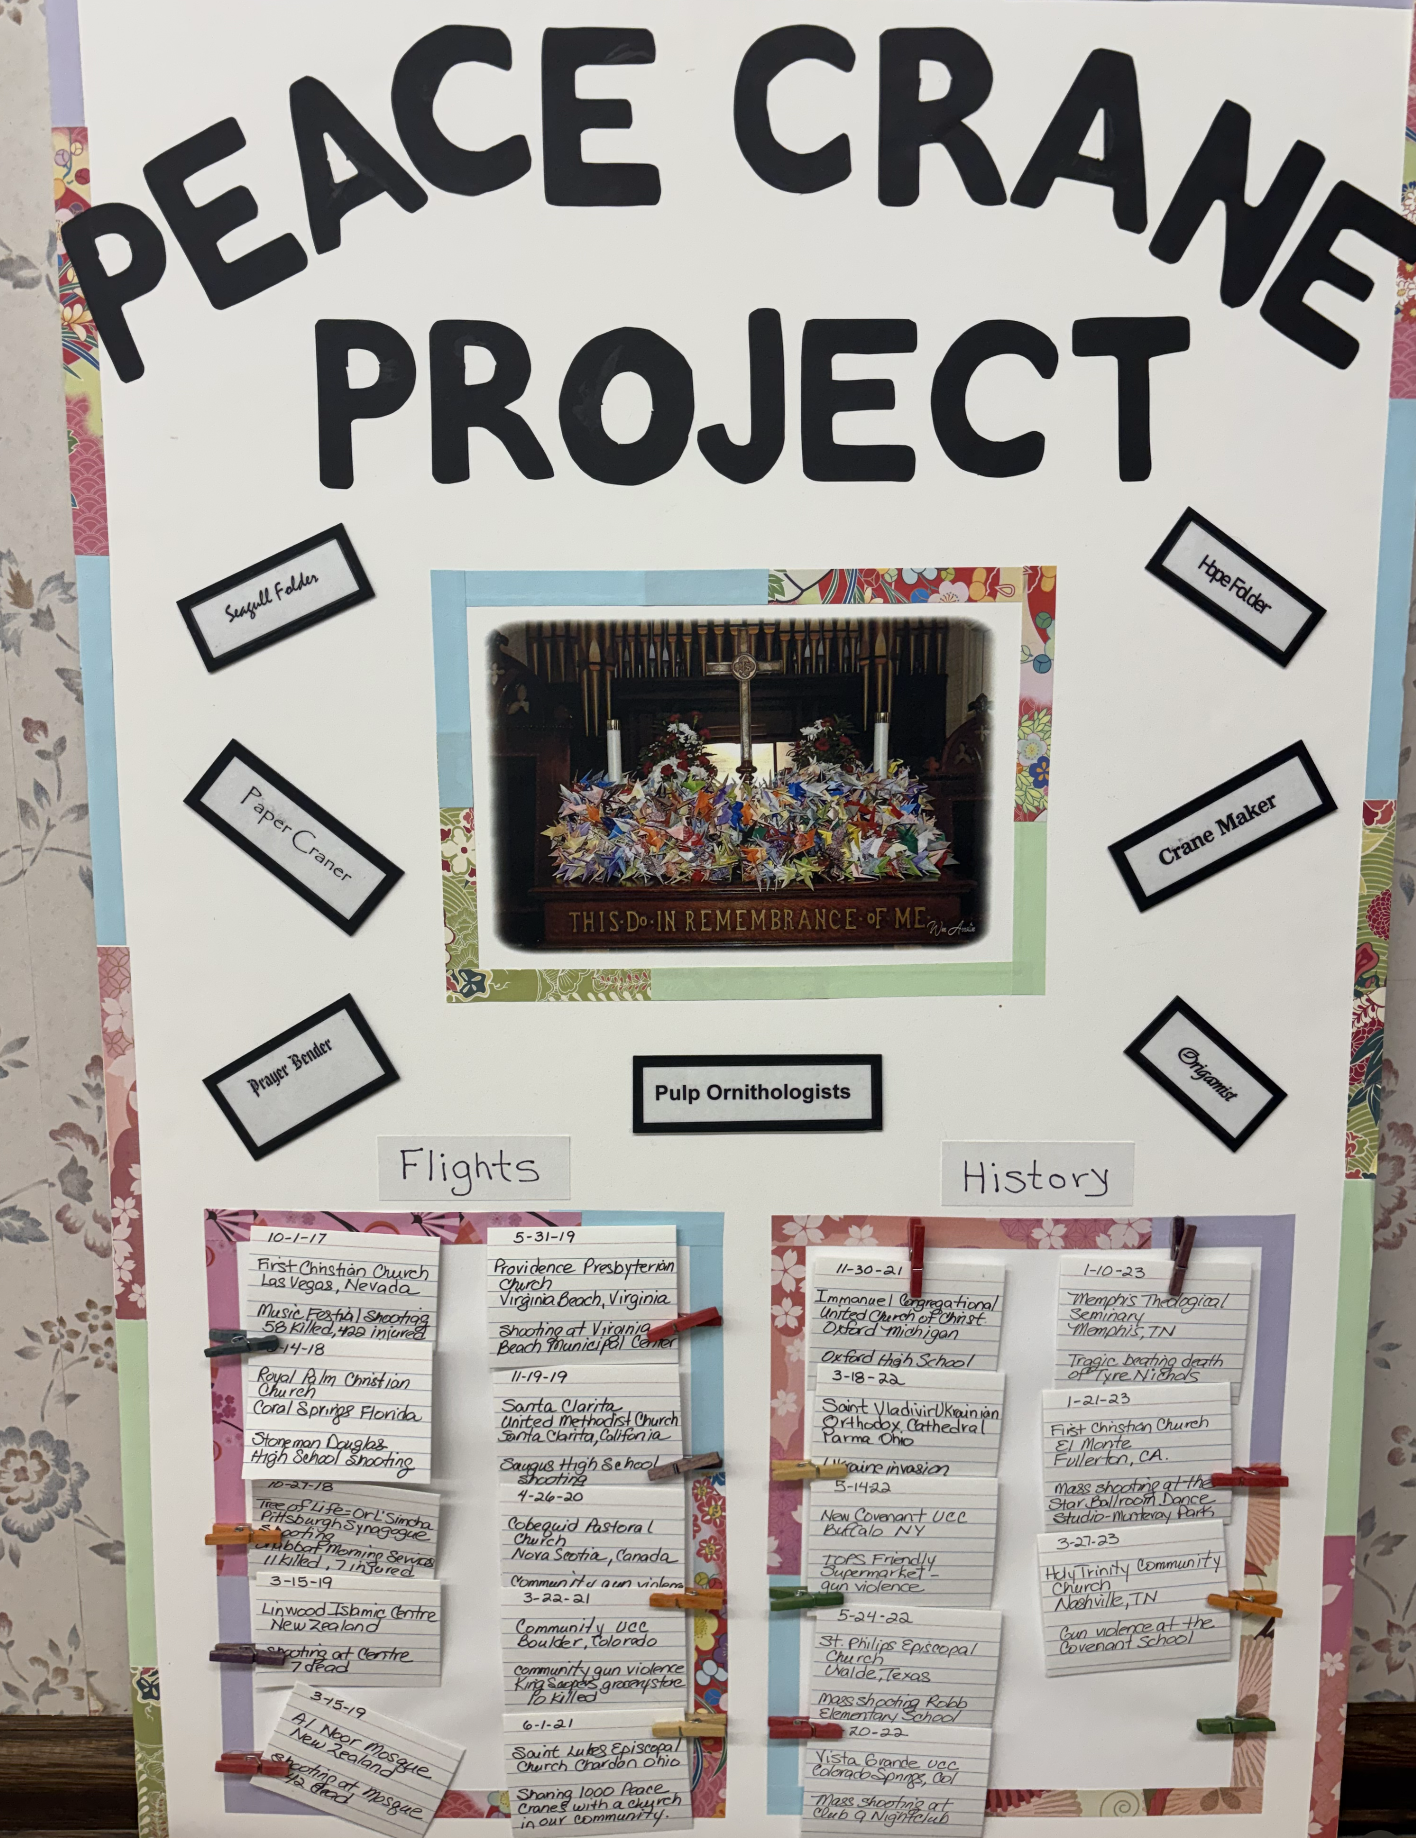 PEACE CRANE
PROJECT
Seagull Folder
Hope Folder
Paper Craner
Crane Maker
THIS·DO·IN REMEMBRANCE·OF ME
Prayer Bender
Pulp Ornithologists
Origamist
Flights
10-1-17
First Christian Church
Las Vegas, Nevada
Music Festival Shooting
58 killed, 422 injured
14-18
Royal Palm Christian
Church
Coral Springs Florida
Stoneman Douglas
High School shooting
10-27-18
Tree of Life-Or L'Simcha
Pittsburgh Synagogue
Shooting
Shabbat Morning Services
11 killed, 7 injured
3-15-19
Linwood Islamic Centre
New Zealand
Shooting at Centre
7 dead
3-15-19
Al Noor Mosque
New Zealand
Shooting at Mosque
42 dead
5-31-19
Providence Presbyterian
Church
Virginia Beach, Virginia
Shooting at Virginia
Beach Municipal Center
11-19-19
Santa Clarita
United Methodist Church
Santa Clarita, California
Saugus High School
shooting
4-26-20
Cobequid Pastoral
Church
Nova Scotia, Canada
Community gun violence
3-22-21
Community UCC
Boulder, Colorado
community gun violence
King Soopers grocery store
10 killed
6-1-21
Saint Lukes Episcopal
Church Chardon Ohio
Sharing 1000 Peace
Cranes with a church
in our community.
History
11-30-21
Immanuel Congregational
United Church of Christ
Oxford Michigan
Oxford High School
3-18-22
Saint Vladivir Ukrainian
Orthodox Cathedral
Parma Ohio
Ukraine invasion
5-1422
New Covenant UCC
Buffalo NY
TOPS Friendly
Supermarket-
gun violence
5-24-22
St. Philips Episcopal
Church
Uvalde, Texas
Mass shooting Robb
Elementary School
20-22
Vista Grande UCC
Colorado Springs, Col
Mass shooting at
Club Q Nightclub
1-10-23
Memphis Theological
Seminary
Memphis, TN
Tragic beating death
of Tyre Nichols
1-21-23
First Christian Church
El Monte
Fullerton, CA.
Mass shooting at the
Star Ballroom Dance
Studio-Monterey Park
3-27-23
Holy Trinity Community
Church
Nashville, TN
Gun violence at the
Covenant School